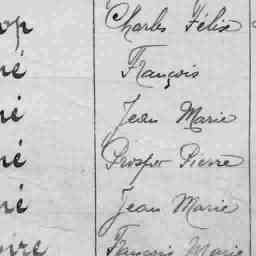 op Charles Félix
né François
né Jean Marie
né Prosper Pierre
né Jean Marie
oire François Marie